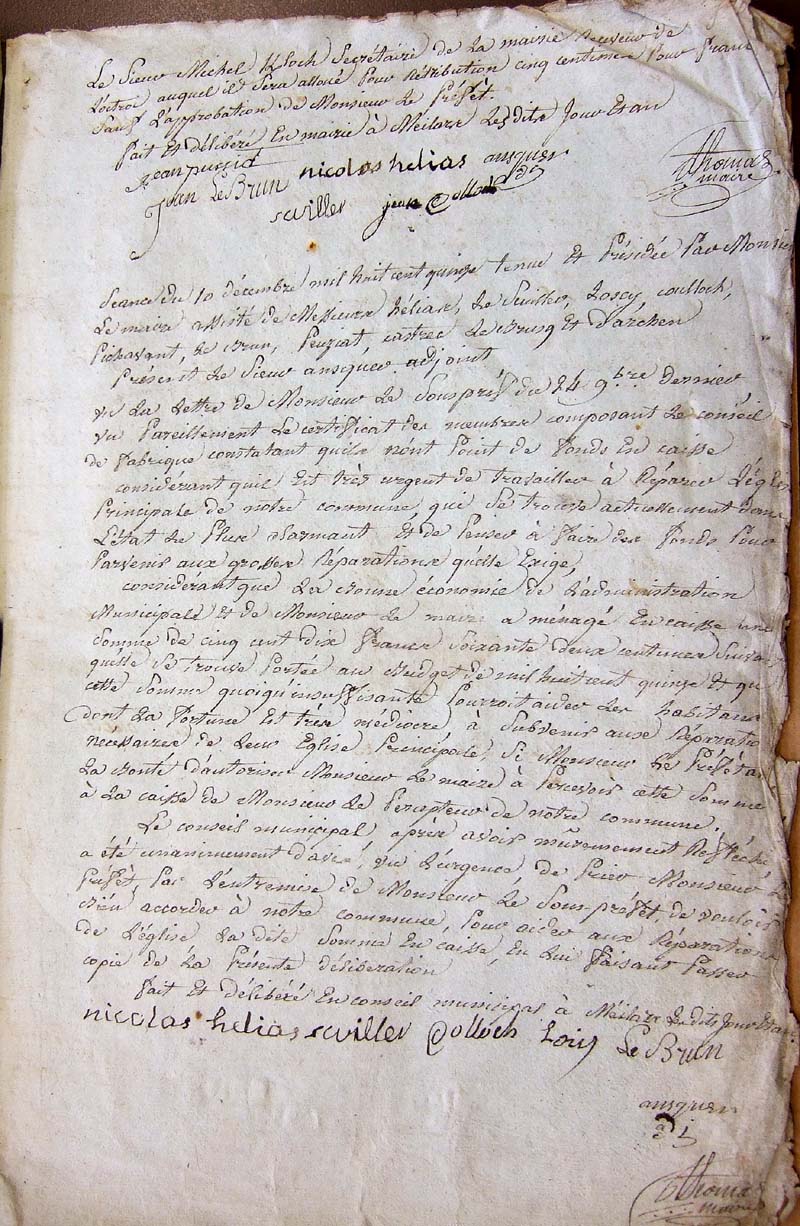 Le Sieur Michel Kloch Secrétaire de la mairie receveur de
L'octroi auquel il sera alloué pour rétribution cinq centimes pour franc
Sauf l'approbation de Monsieur Le Préfèt.
fait et délibéré En mairie à Meilars Les dits Jour Et an
Jean peuziat
Jean Le Brun nicolas helias ansquer adj
scviller jean Colloch
Thomas maire
Seance du 10 décembre mil huit cent quinze tenue et Présidée Par Monsieur
Le maire assisté de Messieurs hélias, Le Sciviller, Loscy, coulloch,
Pichavant, Le Brun, Peuziat, castrec Le Brusq Et d'archen
Présent Le Sieur ansquer adjoint
vu La Lettre de Monsieur Le Souspréft du 24 9.bre dernier
vu Pareillement Le certificat des membres composant Le conseil
de fabrique constatant qu'ils n'ont Point de fonds En caisse
considérant qu'il Est très urgent de travailler à Réparer L'église
Principale de notre commune, qui Se trouve actuellement dans
L'état Le Plus alarmant Et de Penser à faire des fonds Pour
Parvenir aux grosses Réparations qu'elle Exige,
considérant que La bonne économie de L'administration
Municipale Et de Monsieur Le maire a ménagé En caisse une
Somme de cinq cent dix francs Soixante deux centimes
qu'elle Se trouve Portée au Budget de mil huit cent quinze Et que
cette Somme quoiqu'insuffisante Pourroit aider Les habitans
dont La fortune Est très médiocre à Subvenir aux Réparations
nécessaires de Leur Eglise Principale, Si Monsieur Le Préfèt a
La Bonté d'autoriser Monsieur Le maire à Percevoir cette Somme
à La caisse de Monsieur Le Percepteur de notre commune.
Le conseil municipal après avoir mûrement Réfléchi
a été unanimement d'avis, vu L'urgence, de Prier Monsieur Le
Préfèt, Par L'entremise de Monsieur Le Souspréfèt, de vouloir
Bien accorder à notre commune, Pour aider aux Réparations
de L'église La dite Somme En caisse, En Lui faisant Passer
copie de La Présente délibération
fait Et délibéré En conseil municipal à Meilars Les dits Jour Et an
nicolas helias scviller Colloch Loscy Le Brun
ansquer
adj
Thomas
maire